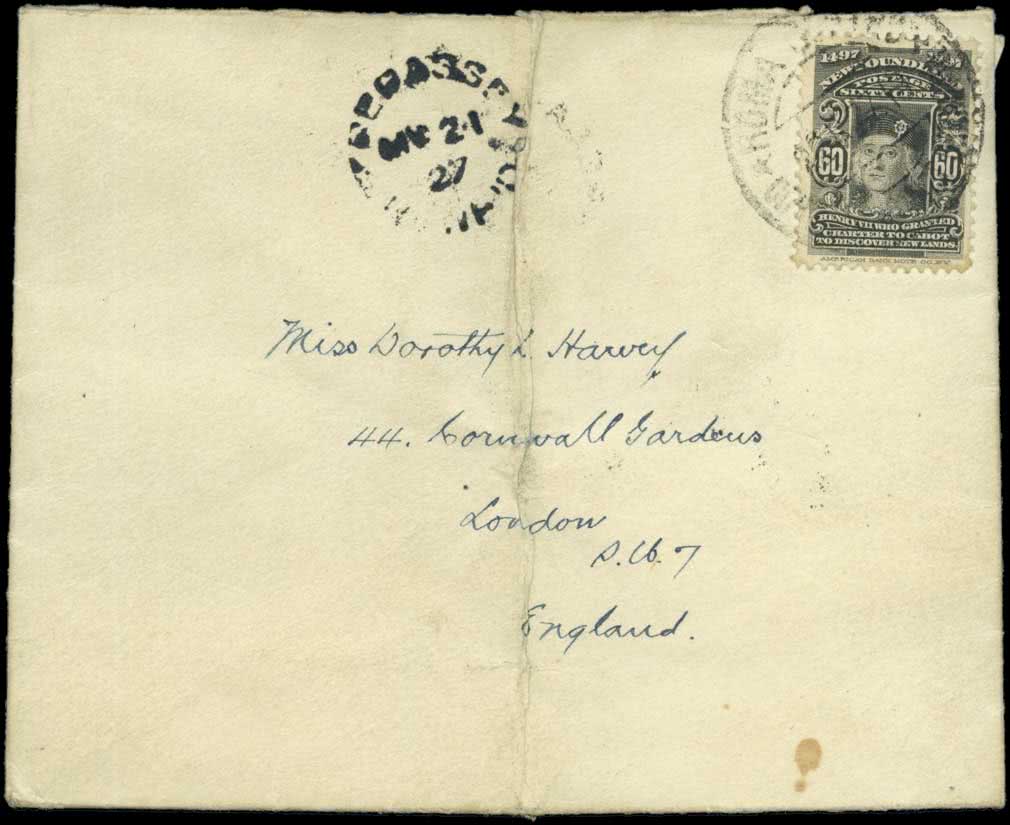 TREPASSEY
MR 21
27
1497 1897
NEWFOUNDLAND
POSTAGE
SIXTY CENTS
60 60
HENRY VII WHO GRANTED
CHARTER TO CABOT
TO DISCOVER NEW LANDS.
AMERICAN BANK NOTE CO. N.Y.
Miss Dorothy L. Harvey
44. Cornwall Gardens
London
S.W. 7
England.